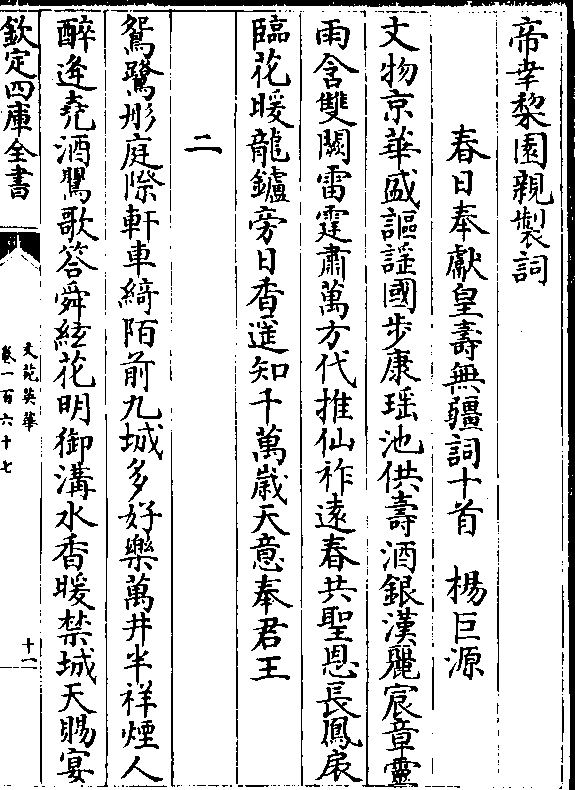 帝幸棃園親製詞
春日奉獻皇壽無疆詞十首　楊巨源
文物京華盛謳謡國步康瑶池供壽酒銀漢麗宸章靈
雨含雙闕雷霆肅萬方代推仙祚遠春共聖恩長鳳扆
臨花暖龍鑪旁日香遥知千萬歲天意奉君王
二
鴛鷺彤庭際軒車綺陌前九城多好樂萬井半祥煙人
醉逢堯酒鸎歌答舜絃花明御溝水香暖禁城天賜宴
欽定四庫全書
文苑英華
卷一百六十七
十一